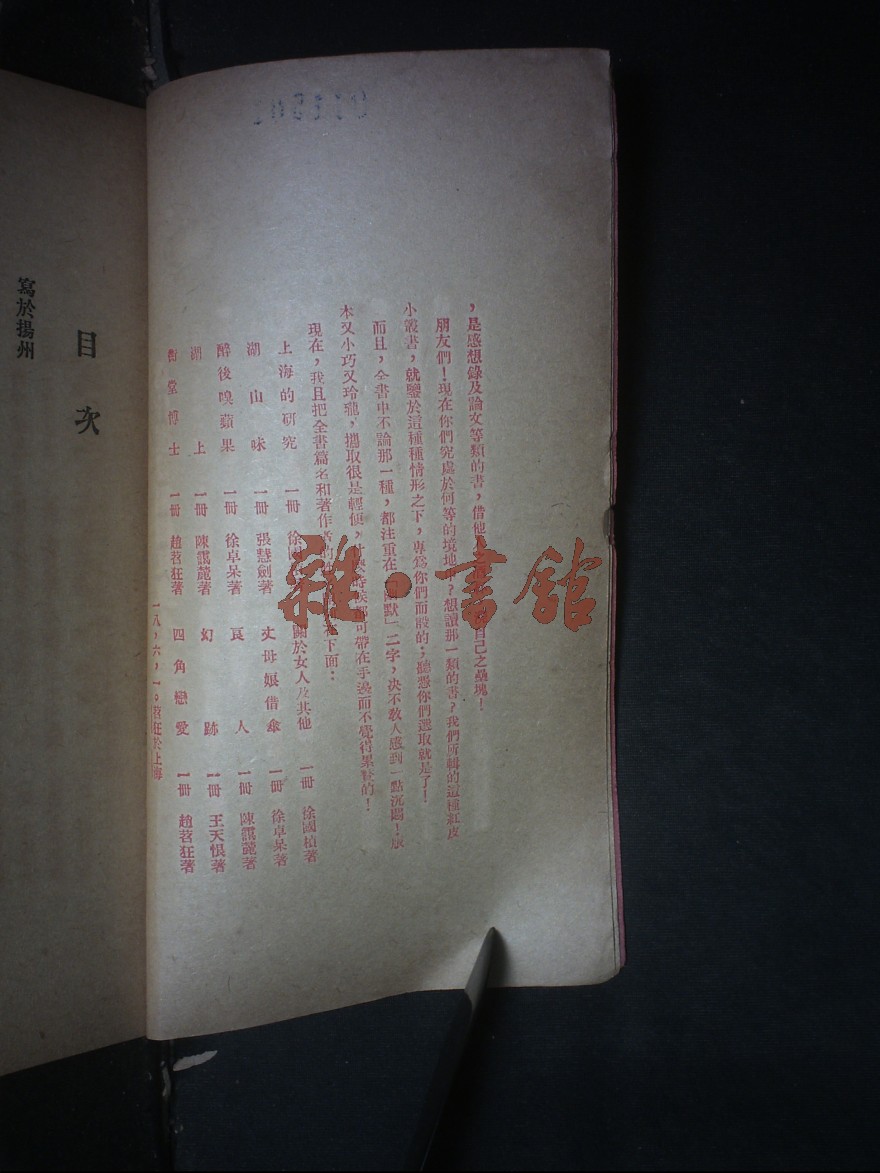 ，是感想錄及論文等類的書，借他 自己之壘塊！
朋友們！現在你們究處於何等的境地 ？想讀那一類的書？我們所輯的這種紅皮
小叢書，就鑒於這種種情形之下，專爲你們而設的；聽憑你們選取就是了！
而且，全書中不論那一種，都注重在「幽默」二字，决不敎人感到一點沉悶！版
本又小巧又玲瓏，攜取很是輕便， 時候都可帶在手邊而不覺得累贅的！
現在，我且把全書篇名和著作者的 下面：
上海的研究 一冊 徐國 關於女人及其他 一冊 徐國楨著
湖山味 一冊 張慧劍著 丈母娘借傘 一冊 徐卓呆著
醉後嗅蘋果 一冊 徐卓呆著 良人 一冊 陳靄麓著
湖上 一冊 陳靄麓著 幻跡 一冊 王天恨著
衖堂博士 一冊 趙苕狂著 四角戀愛 一冊 趙苕狂著
一八，六，一。苕狂於上海
目次
寫於揚州
雜·書館